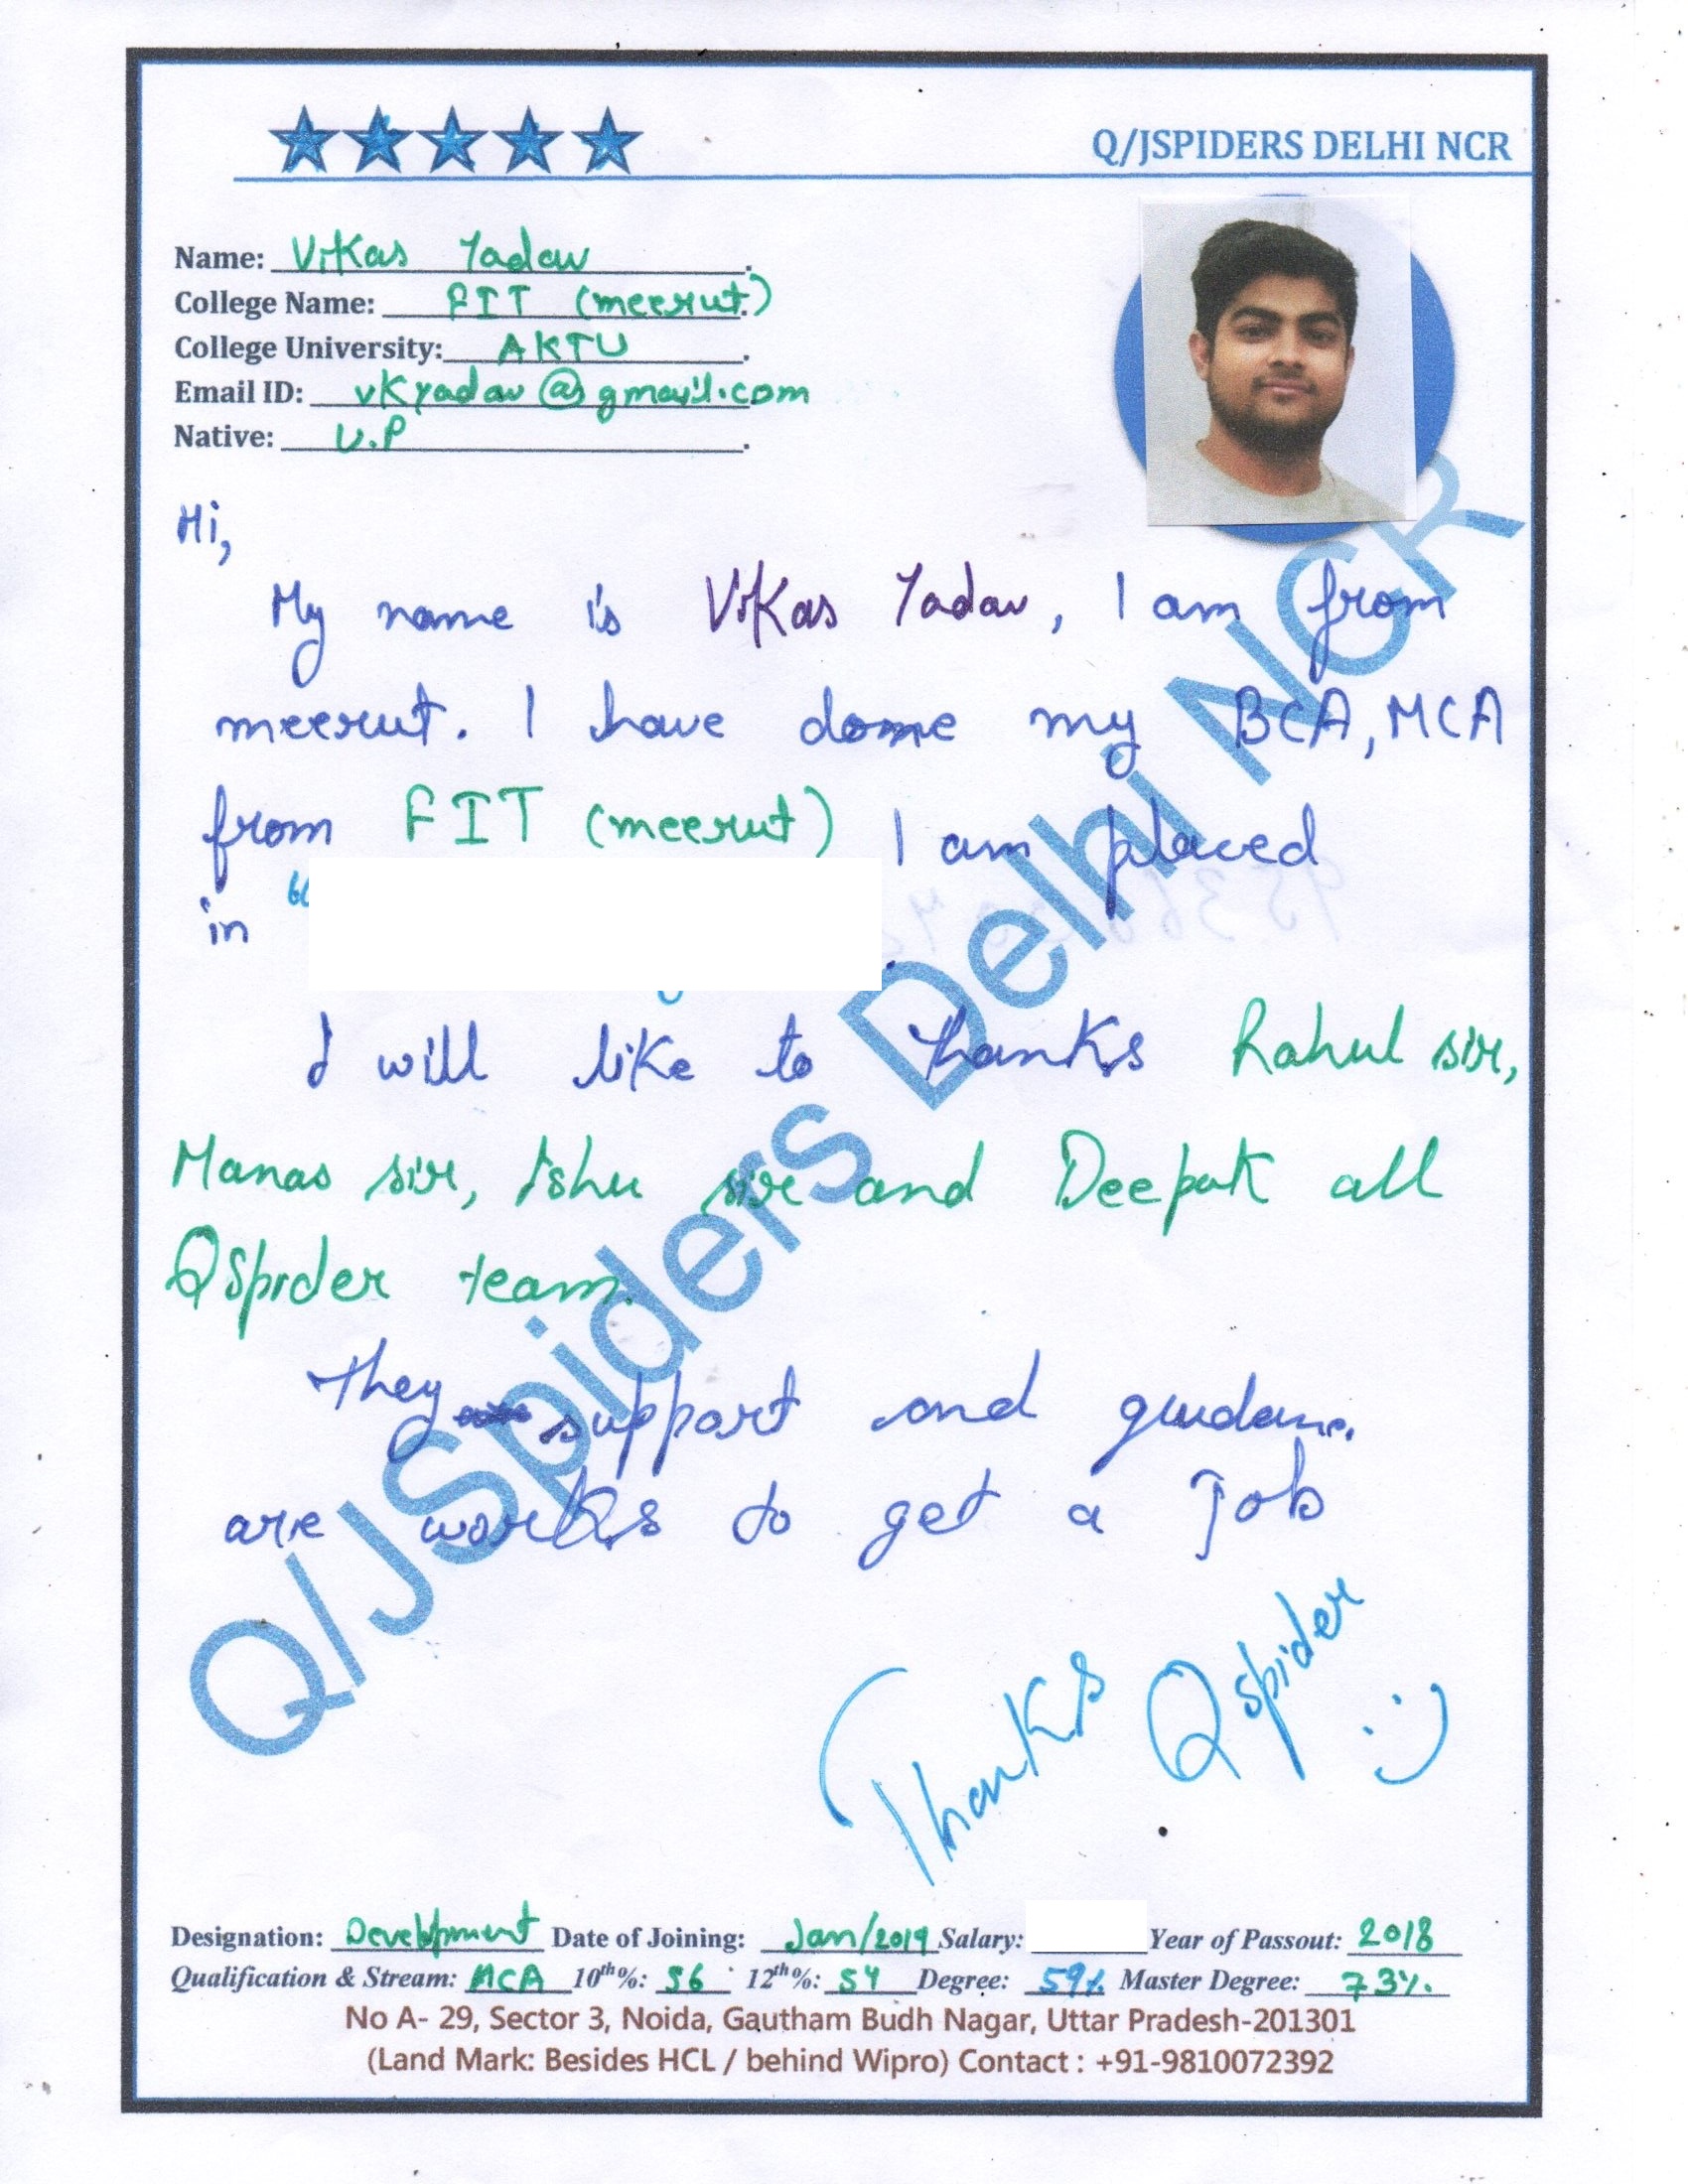 Q/JSPIDERS DELHI NCR
Name: Vikas Yadav
College Name: FIT (meerut)
College University: AKTU
Email ID: vkyadav@gmail.com
Native: U.P
Hi,
My name is Vikas Yadav, I am from
meerut. I have done my BCA, MCA
from FIT (meerut) I am placed
in "
I will like to thanks Rahul sir,
Manas sir, Ishu sir and Deepak all
QSpider team.
They support and guidance
are works to get a Job
Thanks Qspider :)
Q/JSpiders Delhi NCR
Designation: Development Date of Joining: Jan/2019 Salary: Year of Passout: 2018
Qualification & Stream: MCA 10th%: 56 12th%: 54 Degree: 59% Master Degree: 73%.
No A- 29, Sector 3, Noida, Gautham Budh Nagar, Uttar Pradesh-201301
(Land Mark: Besides HCL / behind Wipro) Contact : +91-9810072392